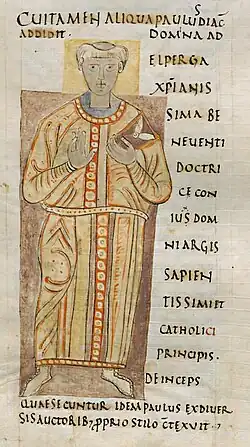 CUITAMEN ALIQUA PAULUS DIAC
ADDIDIT. DOMNA AD
ELPERGA
XPIANIS
SIMA BE
NEVENTI
DOCTRI
CE CON
IUS DOM
NI ARGIS
SAPIEN
TISSIMI ET
CATHOLICI
PRINCIPIS.
DEINCEPS
QUAE SECUNTUR IDEM PAULUS EX DIVER
SIS AUCTORIB; PPRIO STILO CTEXUIT